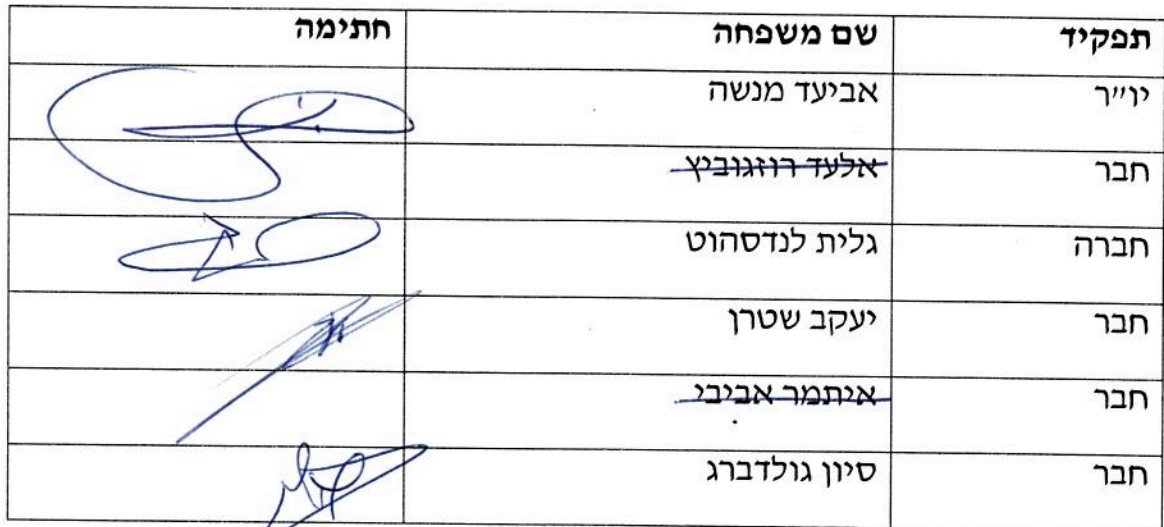 תפקיד שם משפחה חתימה
יו״ר אביעד מנשה
חבר אלעד רוזגוביץ
חברה גלית לנדסהוט
חבר יעקב שטרן
חבר איתמר אביבי
חבר סיון גולדברג